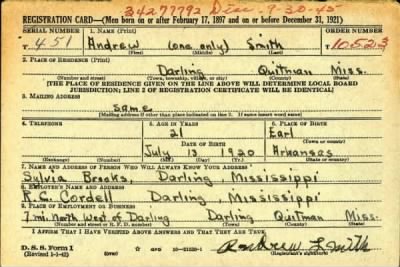 34277792 Disc 9-30-45
REGISTRATION CARD—(Men born on or after February 17, 1897 and on or before December 31, 1921)
SERIAL NUMBER 1. NAME (Print) ORDER NUMBER
T 451 Andrew (one only) Smith 10523
(First) (Middle) (Last)
2. PLACE OF RESIDENCE (Print)
Darling Quitman Miss.
(Number and street) (Town, township, village, or city) (County) (State)
[THE PLACE OF RESIDENCE GIVEN ON THE LINE ABOVE WILL DETERMINE LOCAL BOARD
JURISDICTION; LINE 2 OF REGISTRATION CERTIFICATE WILL BE IDENTICAL]
3. MAILING ADDRESS
same
[Mailing address if other than place indicated on line 2. If same insert word same]
4. TELEPHONE 5. AGE IN YEARS 6. PLACE OF BIRTH
21 Earl
DATE OF BIRTH (Town or county)
July 13 1920 Arkansas
(Exchange) (Number) (Mo.) (Day) (Yr.) (State or country)
7. NAME AND ADDRESS OF PERSON WHO WILL ALWAYS KNOW YOUR ADDRESS
Sylvia Brooks, Darling, Mississippi
8. EMPLOYER'S NAME AND ADDRESS
R.C. Cordell Darling, Mississippi
9. PLACE OF EMPLOYMENT OR BUSINESS
7 mi. North West of Darling Darling Quitman Miss.
(Number and street or R. F. D. number) (Town) (County) (State)
I AFFIRM THAT I HAVE VERIFIED ABOVE ANSWERS AND THAT THEY ARE TRUE.
D. S. S. Form 1
(Revised 1-1-42) GPO 16—21630-1 Andrew L Smith